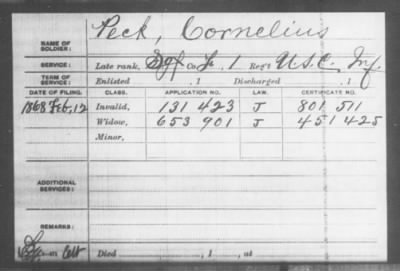 NAME OF SOLDIER: Peck, Cornelius
SERVICE: Late rank, Sgt Co. 1 Reg't U.S.C. Inf.
TERM OF SERVICE: Enlisted , 1 Discharged , 1
DATE OF FILING. CLASS. APPLICATION NO. LAW. CERTIFICATE NO.
1868 Feb, 12 Invalid, 131 423 J 801 511
Widow, 653 901 J 451 425
Minor,
ADDITIONAL SERVICES:
REMARKS:
Died , 1 , at